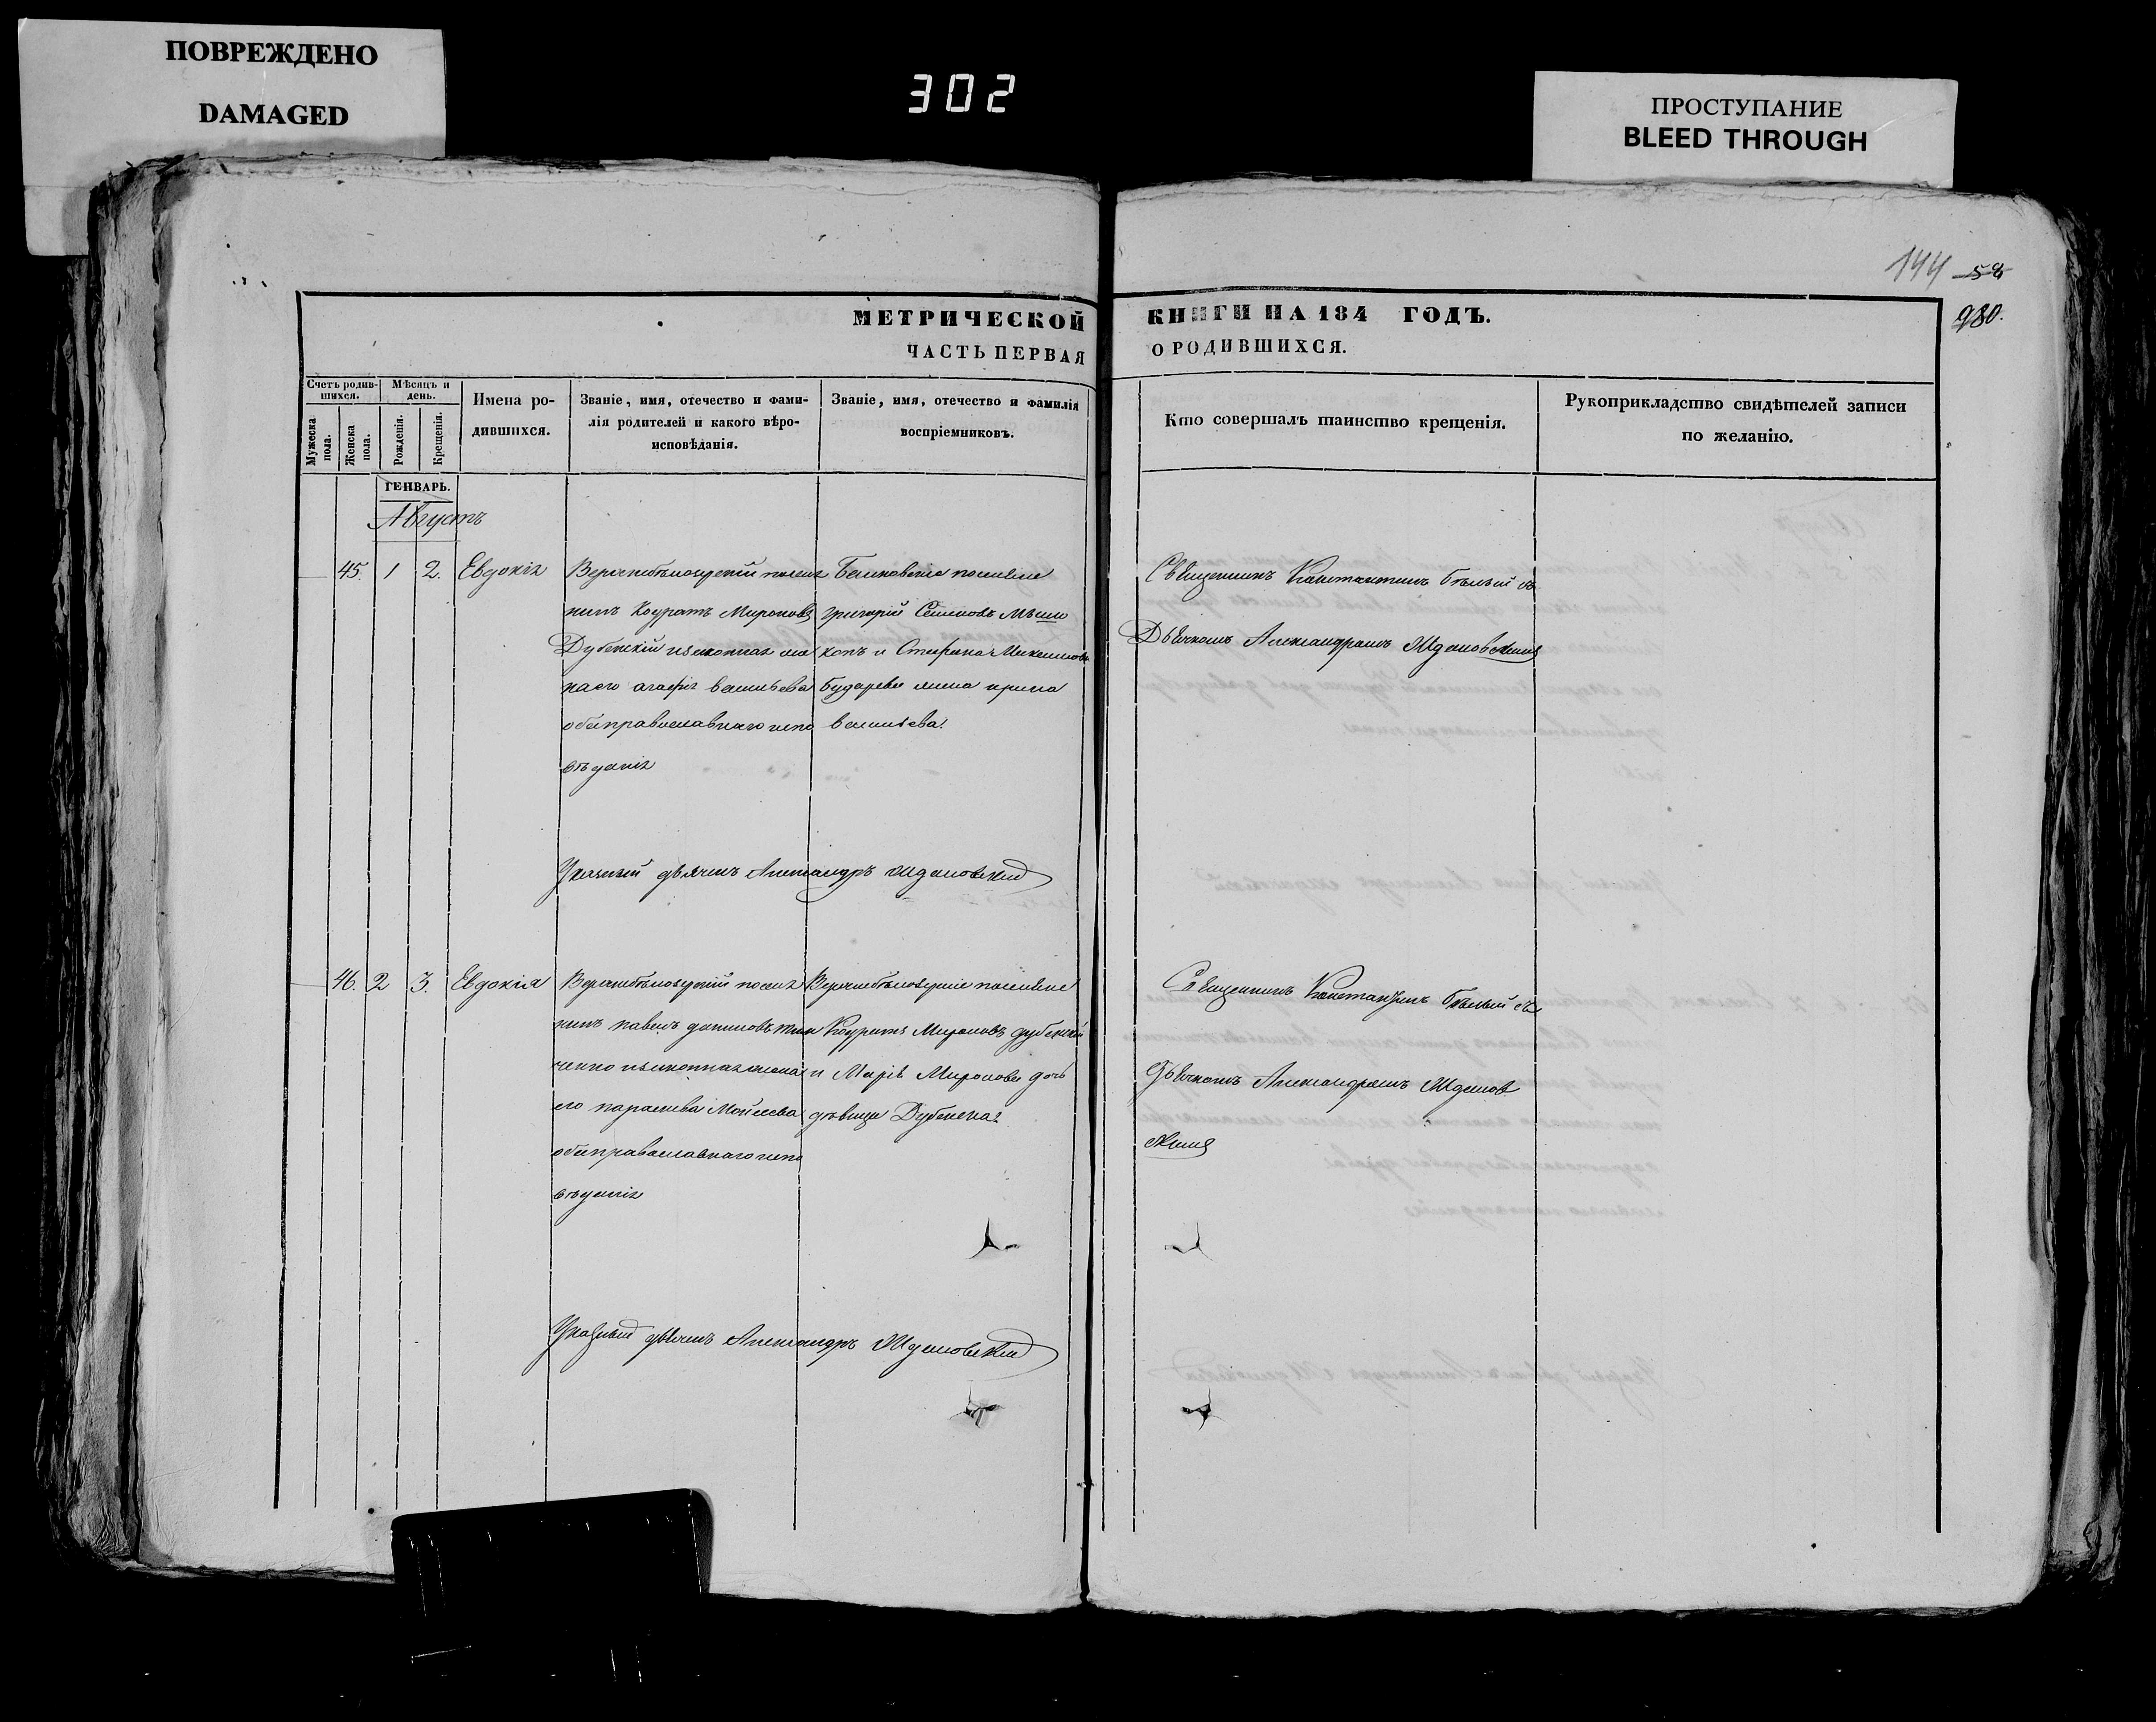 ПОВРЕЖДЕНО
DAMAGED
302
ПРОСТУПАНИЕ
BLEED THROUGH
144 58
980.
МЕТРИЧЕСКОЙ КНИГИ НА 184 ГОДЪ.
ЧАСТЬ ПЕРВАЯ О РОДИВШИХСЯ.
Счетъ родившихся.
Мѣсяцъ и день.
Мужеска пола.
Женска пола.
Рожденія.
Крещенія.
Имена родившихся.
Званіе, имя, отечество и фамилія родителей и какого вѣроисповѣданія.
Званіе, имя, отечество и фамилія воспріемниковъ.
Кто совершалъ таинство крещенія.
Рукоприкладство свидѣтелей записи по желанію.
ГЕНВАРЬ.
Августъ
45. 1 2. Евдокія
Верхнебѣлозерскій поселя
нинъ Кодратъ Мироновъ
Дубенскій изаконная же
на его агафія васильева
оба православнаго испо
вѣданія
поселяне
григорій Семеновъ
и Стефана
жена ирина
васильева.
Священникъ Константинъ Бѣлый съ
Дьячкомъ Александромъ Ждановскимъ
Указный дьячекъ Александръ Ждановскій
46. 2 3. Евдокія
Верхнебѣлозерскій поселя
нинъ павелъ даниловъ
ченко изаконная жена
его параскева Мойсеева
оба православнаго испо
вѣданія
Верхнебѣлозерскіе поселяне
Кодратъ Мироновъ дубенскій
и Марія Миронова дочь
дѣвица Дубенская
Священникъ Константинъ Бѣлый съ
Дьячкомъ Александромъ Жданов
скимъ
Указный дьячекъ Александръ Ждановскій